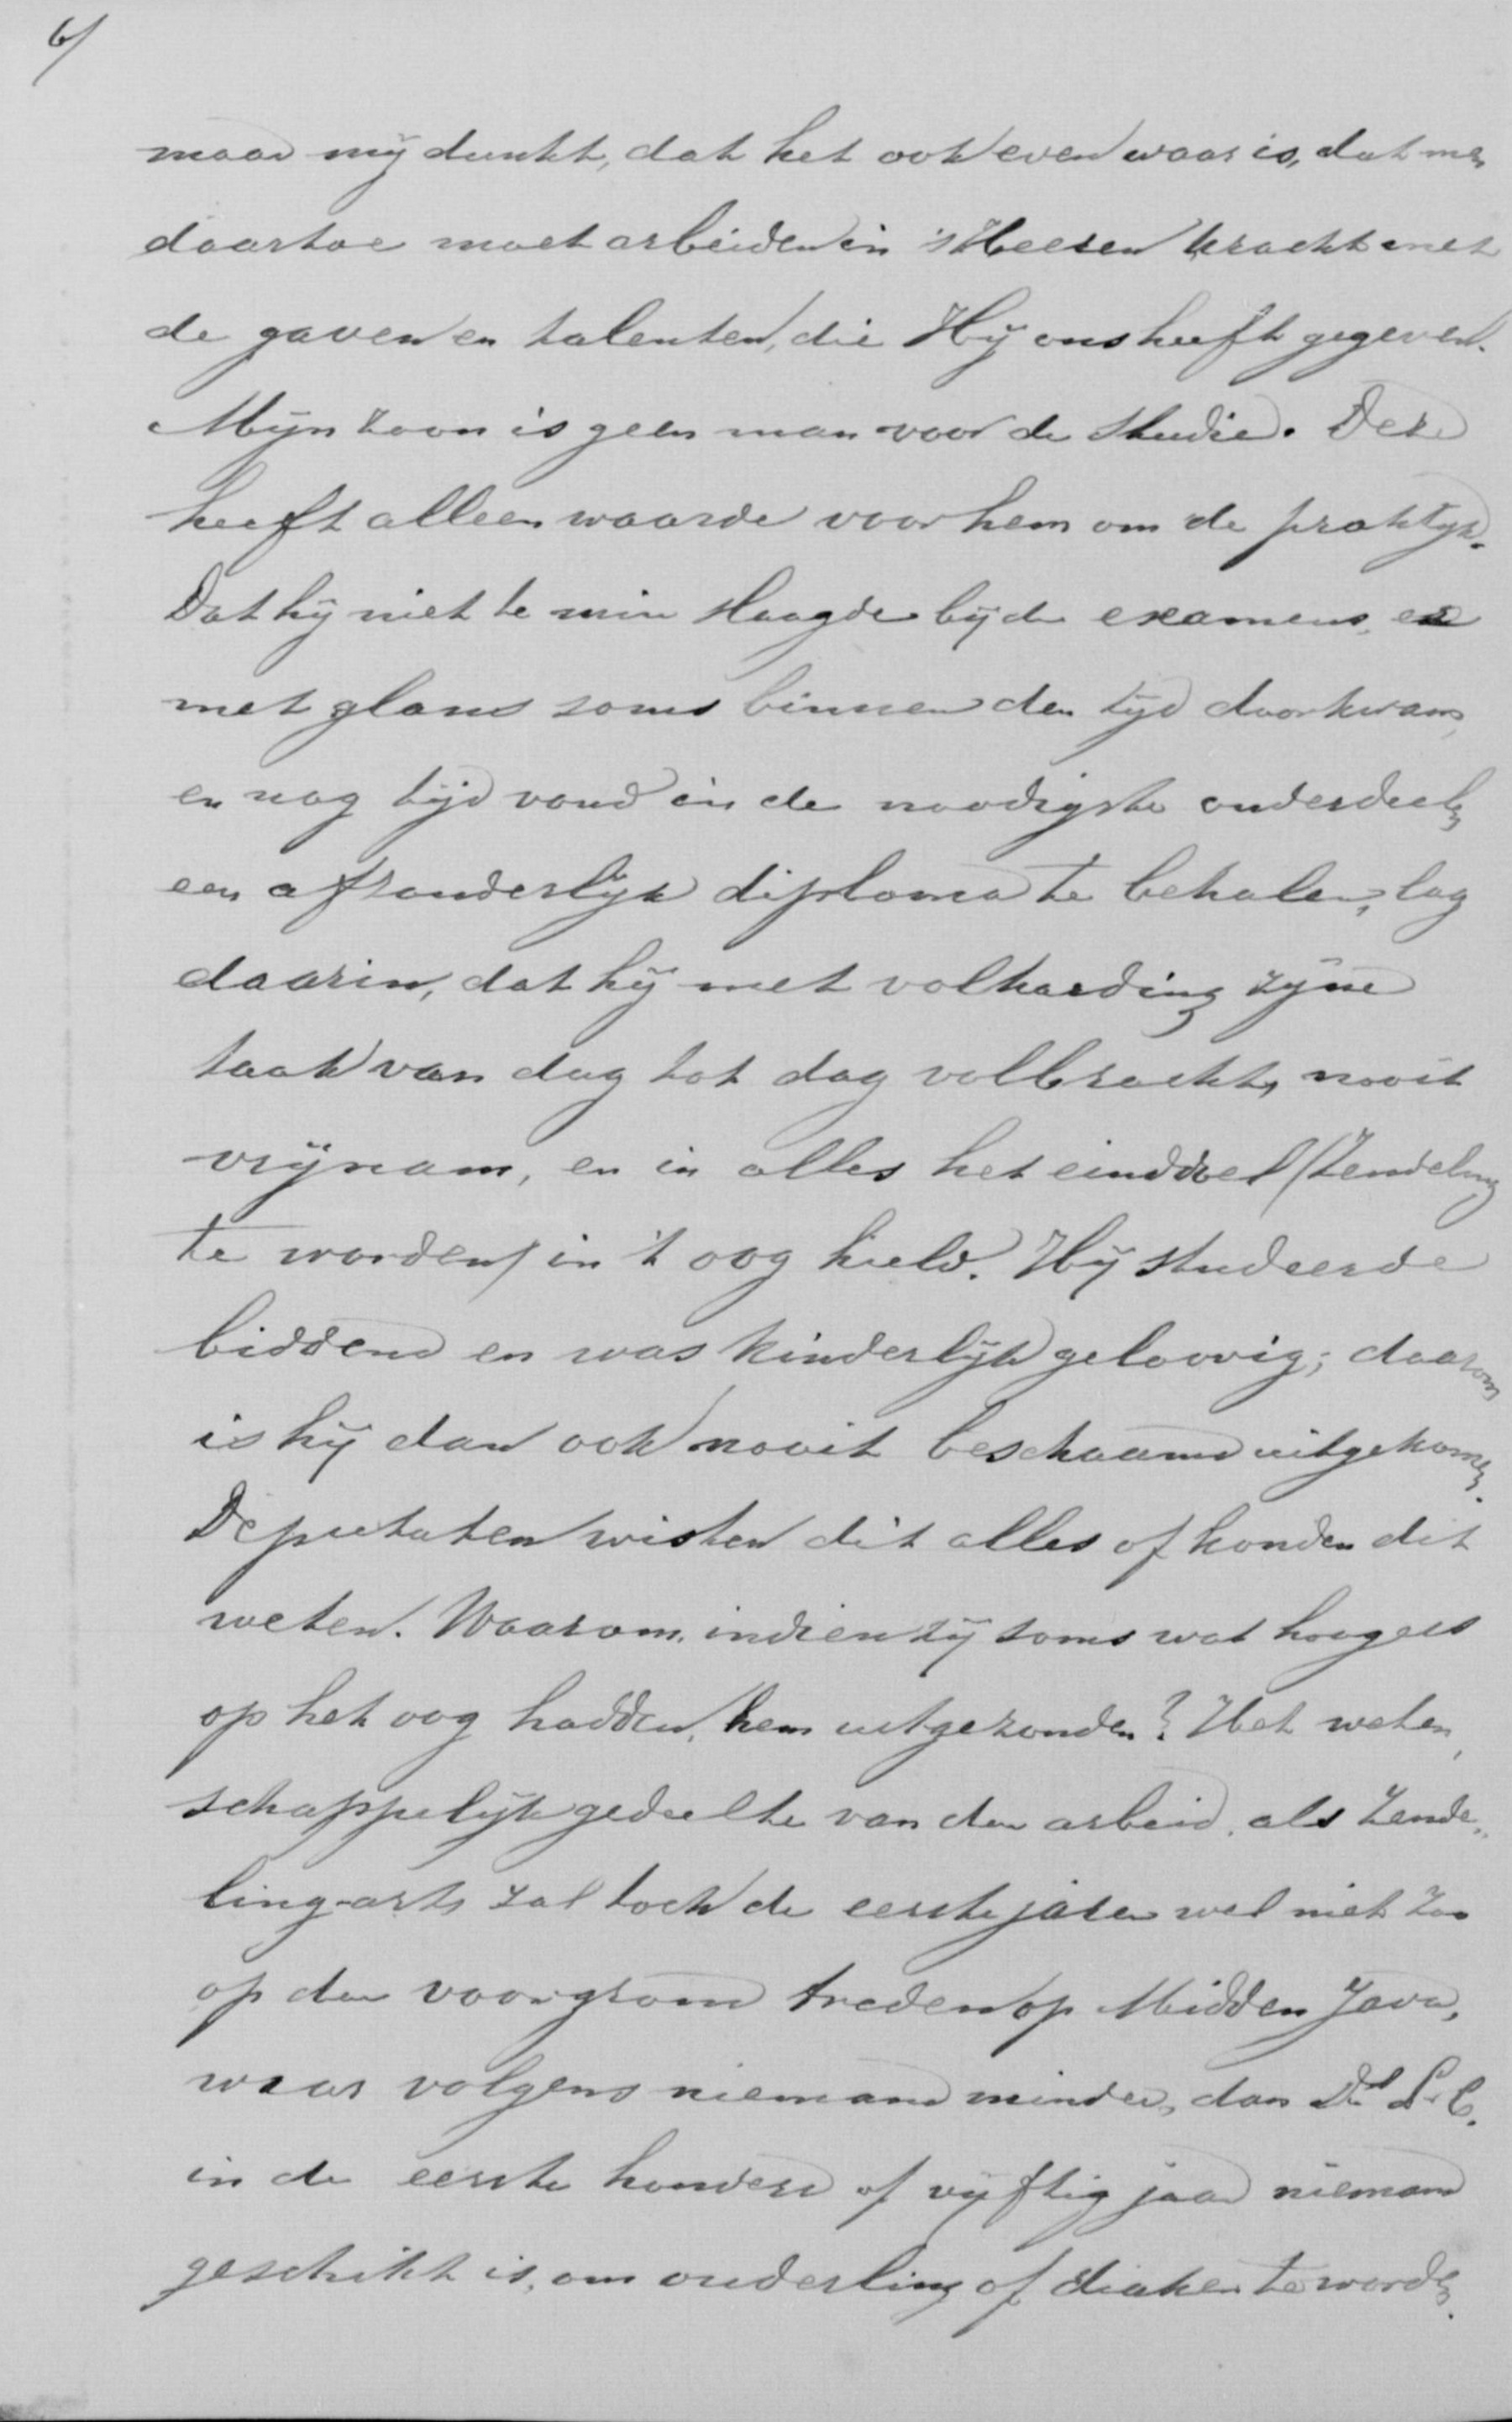 6/
maar mij dunkt, dat het ook even waar is, dat men
daartoe moet arbeiden in 's Heeren kracht met
de gaven en talenten, die Hij ons heeft gegeven.
Mijn zoon is geen man voor de studie. Deze
heeft alleen waarde voor hem om de praktijk.
Dat hij niet te min slaagde bij de examens, en
met glans soms binnen den tijd doorkwam,
en nog tijd vond in de noodigste onderdeelen
een afzonderlijk diploma te behalen, lag
daarin, dat hij met volharding zijne
taak van dag tot dag volbracht, nooit
vrijnam, en in alles het einddoel (Zendeling
te worden) in 't oog hield. Hij studeerde
biddend en was kinderlijk geloovig; daarom
is hij dan ook nooit beschaamd uitgekomen.
Deputaten wisten dit alles of konden dit
weten. Waarom, indien zij soms wat hoogers
op het oog hadden, hem uitgezonden? Het weten„
schappelijk gedeelte van den arbeid als Zende„
ling-arts zal toch de eerste jaren wel niet zoo
op den voorgrond treden op Midden Java,
waar volgens niemand minder, dan Ds L. C.
in de eerste honderd of vijftig jaar niemand
geschikt is, om ouderling of diaken te worden.